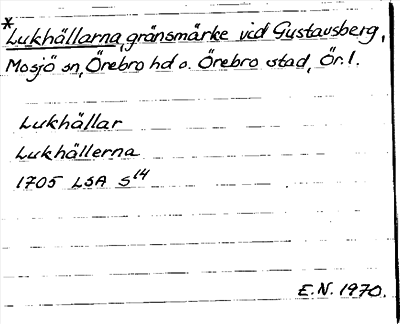 *Lukhällarna, gränsmärke vid Gustavsberg,
Mosjö sn, Örebro hd o. Örebro stad, Ör. l.
Lukhällar
Lukhällerna
1705 LSA S14
E.N. 1970.